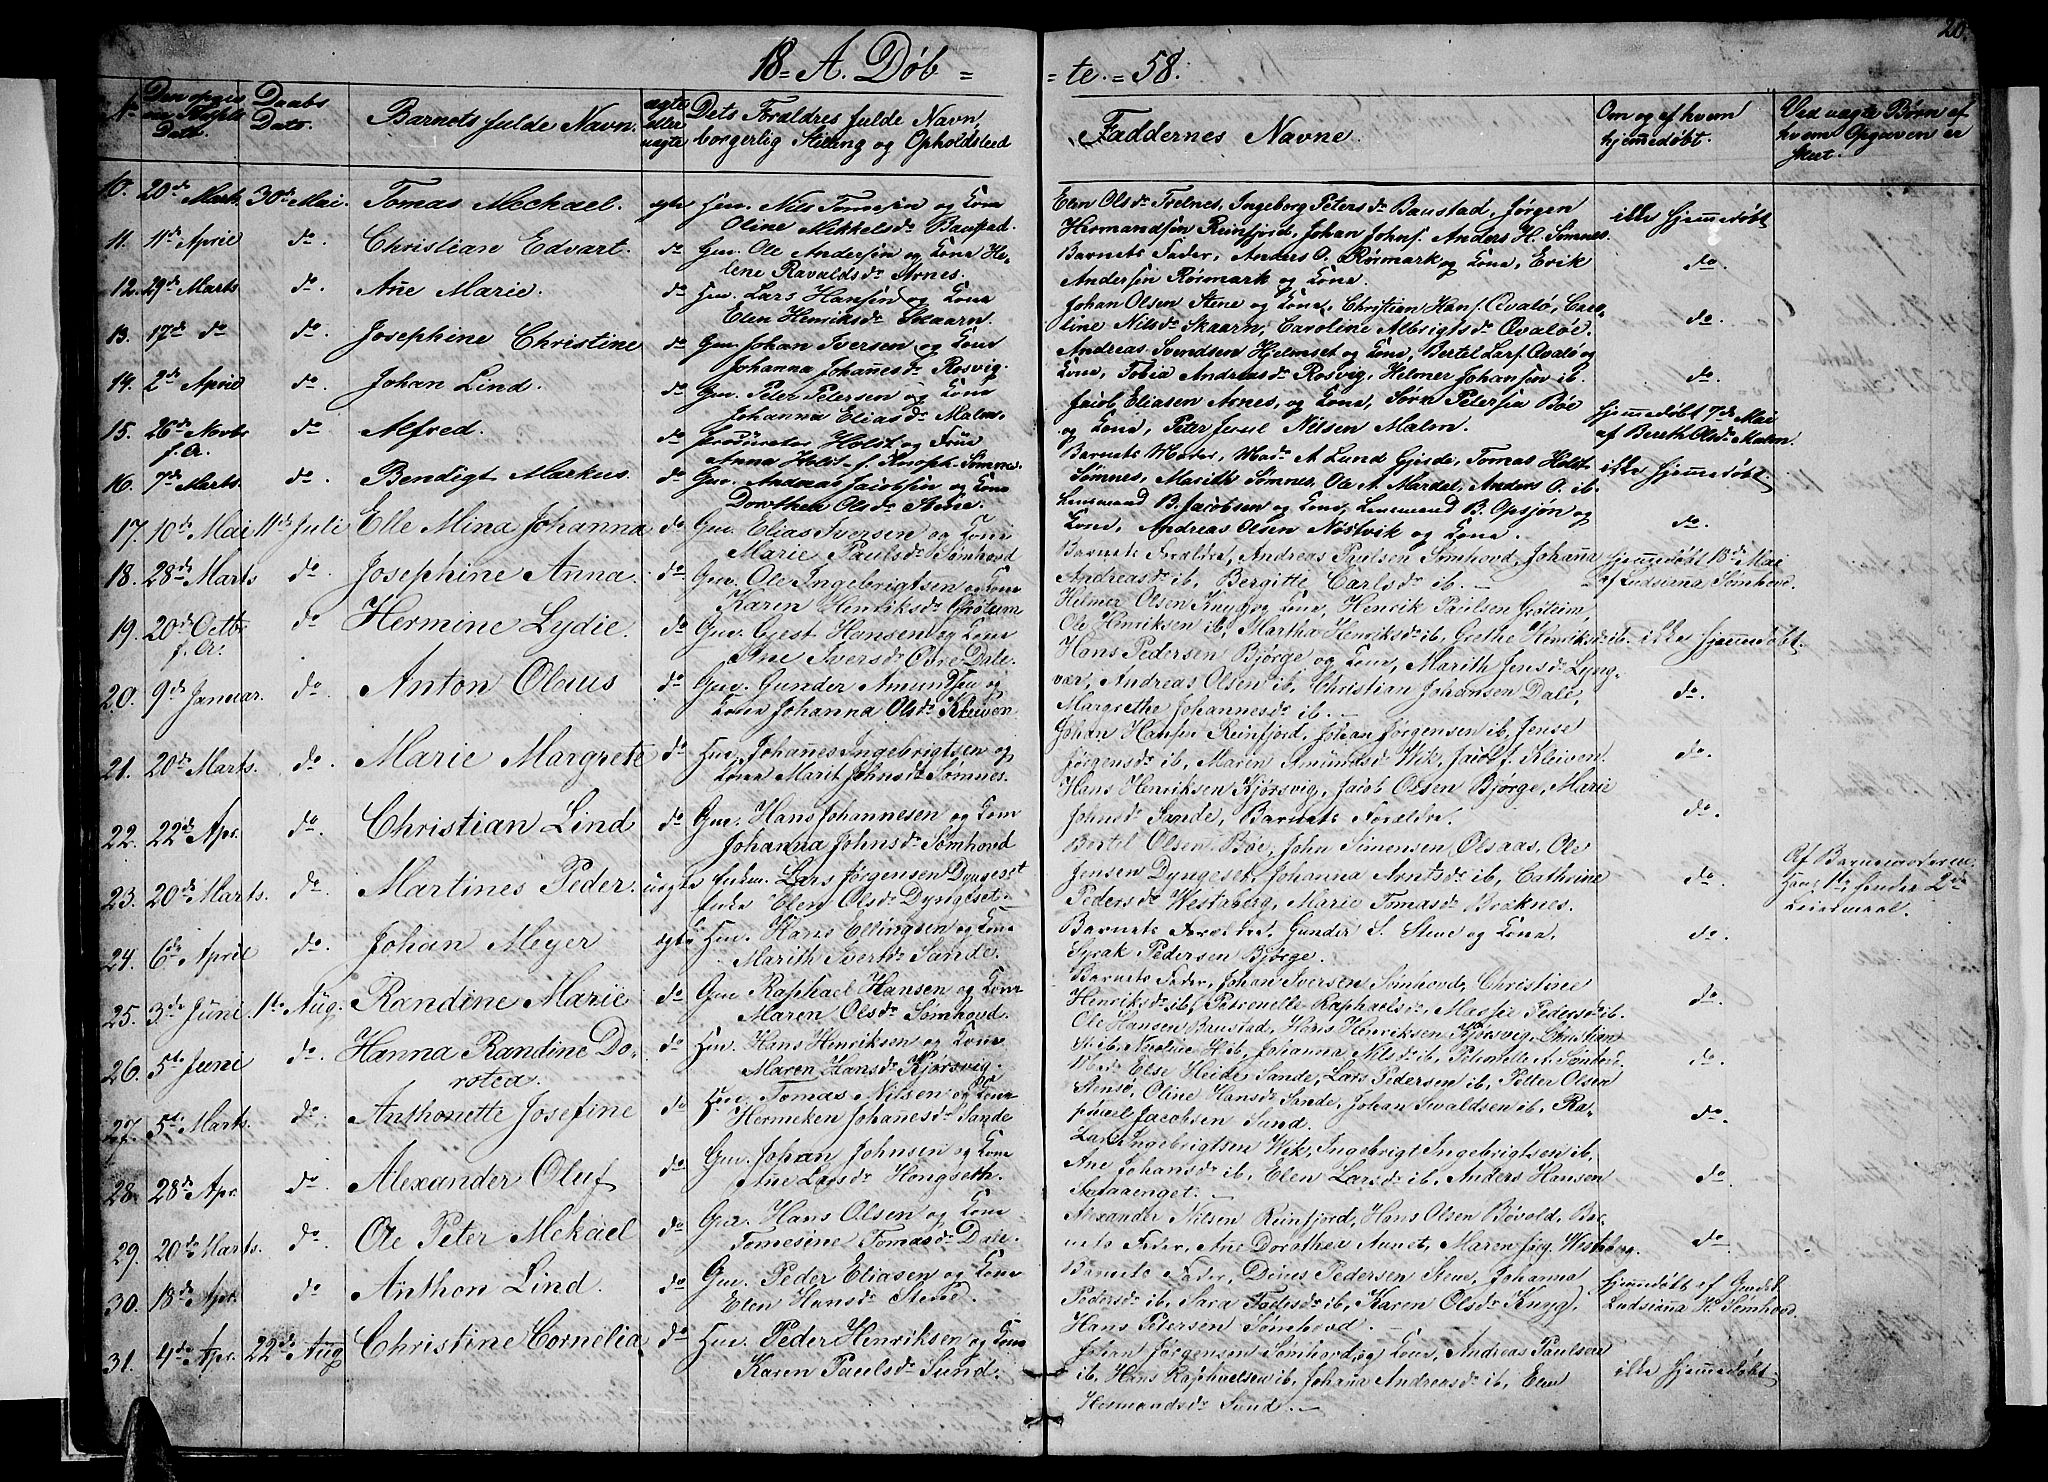 20.
18 = A. Døb =
= te. = 58.
No
Daabs Dato.
Barnets fulde Navn.
ægte eller uægte
Dets Forældres fulde Navn, borgerlig Stilling og Opholdssted
Faddernes Navne.
Om og af hvem hjemmedøbt.
Ved uægte Børn af hvem Opgaven er skeet.
10. 20de Marts 30de Mai. Tomas Mechael. ægte Huu. Nils Tomesen og Kone
Oline Mikkelsdr Baustad.
11. 11te April do. Christian Edvart. do Gm. Ole Andersen og Kone He-
lene Ravaldsdr Arnes.
12. 29de Marts do. Ane Marie. do Huu. Lars Hansen og Kone
Elen Henriksdr Skaarn.
13. 17de do do. Josephine Christine do Gm. Johan Iversen og Kone
Johanna Johanesdr Rosvig.
14. 2de April do. Johan Lind. do Gm. Peter Petersen og Kone
Johanna Eliasdr Malm.
15. 26de Novbr f. A. do Alfred. do procurator Holst og Frue
Anna Holst f. Rosoph. Sømnes.
16. 7de Marts. do. Bendigt Markus do. Gm. Andreas Jacobsen og Kone
Dorothea Olsdr Arne.
17. 10de Mai 11te Juli Elle Mina Johanna do Gm. Elias Iversen og Kone
Marie Paulsdr Sømhovd
18. 28de Marts do. Josephine Anna. do. Gm. Ole Ingebrigtsen og Kone
Karen Henriksdr Grøtum
19. 20de Octbr f. A. do Hermine Lydie. do Gm. Gjest Hansen og Kone
Ane Iversdr Øvre Dale.
20. 9de Januar. do. Anton Olaus do. Gm. Gunder Amundsen og
Kone Johanna Olsdr Kleiven
21. 20de Marts. do. Marie Margrete do Huu. Johanes Ingebrigtsen og
Kone Marit Johnsdr Sømnes.
22. 22de Apr. do. Christian Lind do Gm. Hans Johannesen og Kone
Johanna Johnsdr Sømhovd
23. 20de Marts. do. Martines Peder. uægte Enkm. Lars Jørgensen Dyngeset
Enke Elen Olsdr Dyngeset.
24. 6de April do. Johan Meyer ægte Huu. Hans Ellingsen og Kone
Marith Ivertsdr Sande.
25. 3de Juni. 1te Aug. Randine Marie do Gm Raphael Hansen og Kone
Maren Olsdr Sømhovd.
26. 5te Juni do. Hanna Randine Do-
rotea. do Huu. Hans Henriksen og Kone
Maren Hansdr Kjørsvig.
27. 5te Marts. do. Anthonette Josefine do Huu Tomas Nilsen og Kone
Hermeken Johanesdr Sande
28. 28de Apr. do. Alexander Oluf do Gm. Johan Johnsen og Kone
Ane Larsdr Hongseth.
29. 20de Marts. do. Ole Peter Mekael do Gm. Hans Olsen og Kone
Tomesine Tomasdr Dale.
30. 18de Apr. do Anthon Lind. do Gm. Peder Eliasen og Kone
Elen Hansdr Stene.
31. 4de Apr. 22de Aug Christine Cornelia do Huu. Peder Henriksen og Kone
Karen Paulsdr Sund.
Elen Olsdr Trelnes, Ingeborg Petersdr Baustad, Jørgen
Hermandsen Reinfjord, Johan Johns. Anders H. Sømnes.
Barnets Fader, Anders O. Rørmark og Kone, Erik
Andersen Rørmark og Kone.
Johan Olsen Stene og Kone, Christian Hans. Qvalø,
line Nilsdr Skaarn, Caroline Albrigtsdr Qvaløe.
Andreas Svendsen Hjelmset og Kone, Bertel Lars. Qvalø og
Kone, Tobia Andreasdr Rosvig, Helmer Johansen ib.
Jacob Eliasen Arnes, og Kone, Søren Petersen Bøe
og Kone, Peter Nilsen Malm.
Barnets Moder, Mad. A Lund Gjesde, Tomas Holst
Sømnes, Marith Sømnes, Ole A. Mardel, Anders O. ib.
Lensmand B. Jacobsen og Kone, Lensmand B. Opsjøn og
Kone, Andreas Olsen Nøstvik og Kone.
Barnets Forældre, Andreas Paulsen Sømhovd, Johana
Andreasdr ib, Bergitte Carlsdr ib.
Helmer Olsen Knyg og Kone, Henrik Paulsen Grøtum,
Ole Henriksen ib, Martha Henriksdr ib, Grethe Henriksdr ib.
Hans Pedersen Bjørge og Kone, Marith Jensdr Lyng-
vær, Andreas Olsen ib, Christian Johansen Dale,
Margrethe Johannesdr ib.
Johan Hansen Reinfjord, Johan Jørgensen ib, Jense
Jørgensdr ib, Maren Amundsdr Wik, Jacob J. Kleiven.
Hans Henriksen Kjørsvig, Jacob Olsen Bjørge, Marie
Johnsdr Sande, Barnets Forældre.
Bertel Olsen Bøe, John Simensen Olsaas, Ole
Jensen Dyngeset, Johanna Arntsdr ib, Cathrine
Pedersdr Westerberg, Marie Tomasdr Bræknes.
Barnets Forældre, Gunder S. Stene og Kone,
Syrak Pedersen Bjørge.
Barnets Fader, Johan Iversen Sømhovd, Christine
Henriksdr ib, Petronelle Raphaelsdr, Massie Pedersdr ib.
Ole Hansen Baustad, Hans Henriksen Kjørsvig, Christian
ib, Nicoline H ib, Johanna Nilsdr ib, Petronelle A.
Else Heide Sande, Lars Pedersen ib, Petter Olsen
Stensø, Oline Hansdr Sande, Johan Svaldsen ib, Ra-
phael Jacobsen Sund.
Lars Ingebrigtsen Wik, Ingebrigt Ingebrigtsen ib,
Ane Johansdr ib, Elen Larsdr ib, Anders Hansen
Alexander Nilsen Reinfjord, Hans Olsen Bøvold, Bar-
nets Fader, Ane Dorothea Aunet, Maren Jørg. Westerberg.
Barnets Fader, Dines Pedersen Stene, Johanna
Pedersdr ib, Sara ib, Karen Olsdr Knyg,
Hans Petersen Sømhovd.
Johan Jørgensen Sømhovd og Kone, Andreas Paulsen
ib, Hans Raphaelsen ib, Johana Andreasdr ib, Elen
Hermandsdr Sund.
ikke hjemmedøbt
do.
do.
do.
hjemmedøbt 7de Mai
af Bereth Olsdr Malm.
ikke hjemmedøbt.
do.
hjemmedøbt 13de Mai
af Ludsiana Sømhovd.
ikke hjemmedøbt.
do.
do.
do.
do.
do.
do.
do.
do.
do.
do.
hjemmedøbt af
Ludsiana H. Sømhovd
ikke hjemmedøbt.
Af Barnemoderen
hans 1te hendes 2de
Leiermaal.